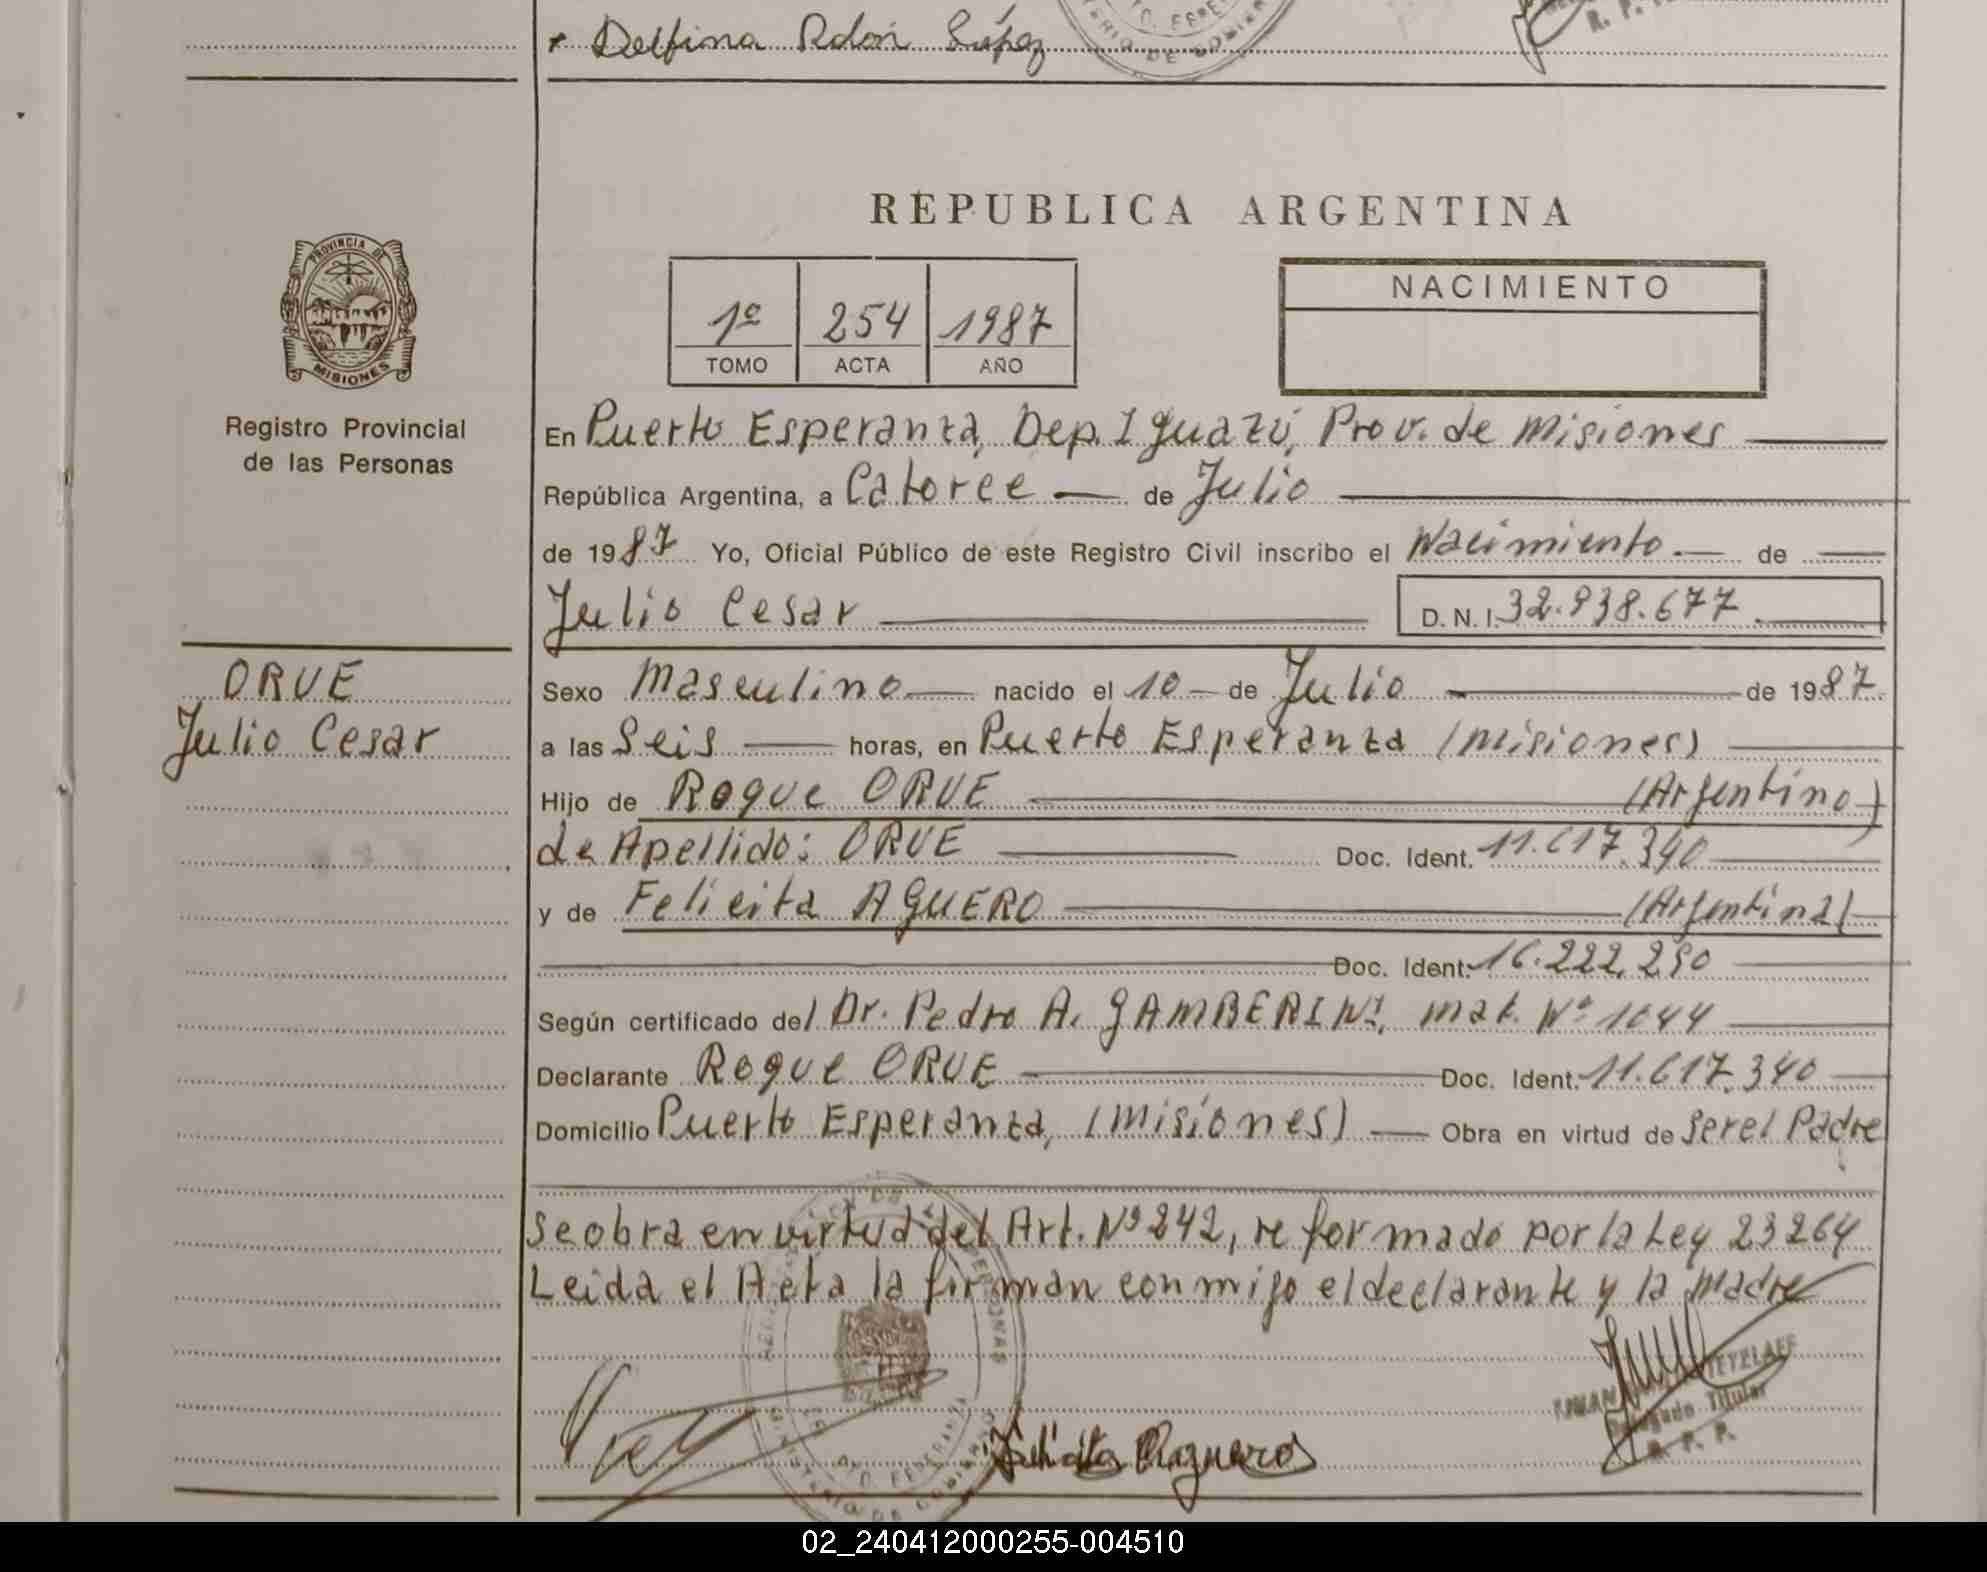 Delfina
REPUBLICA ARGENTINA
PROVINCIA DE
MISIONES
NACIMIENTO
1º 254 1987
TOMO ACTA AÑO
Registro Provincial
de las Personas
En Puerto Esperanza, Dep. Iguazú, Prov. de Misiones
República Argentina, a Catorce de Julio
de 1987 Yo, Oficial Público de este Registro Civil inscribo el Nacimiento de
Julio Cesar D. N. I. 32.938.677
ORVE
Julio Cesar
Sexo Masculino nacido el 10 de Julio de 1987
a las Seis horas, en Puerto Esperanza (Misiones)
Hijo de Roque ORVE (Argentino)
de Apellido: ORVE Doc. Ident. 11.617.340
y de Felicita AGUERO (Argentina)
Doc. Ident. 16.222.290
Según certificado del Dr. Pedro A. GAMBERINI, mat. Nº 1044
Declarante Roque ORVE Doc. Ident. 11.617.340
Domicilio Puerto Esperanza, (Misiones) Obra en virtud de Ser el Padre
Se obra en virtud del Art. Nº 242, reformado por la Ley 23264
Leida el Acta la firman conmigo el declarante y la Madre
Delegado Titular
R. P. P.
PTO. ESPERANZA
MINISTERIO DE GOBIERNO
Felicita Aguero
02_240412000255-004510